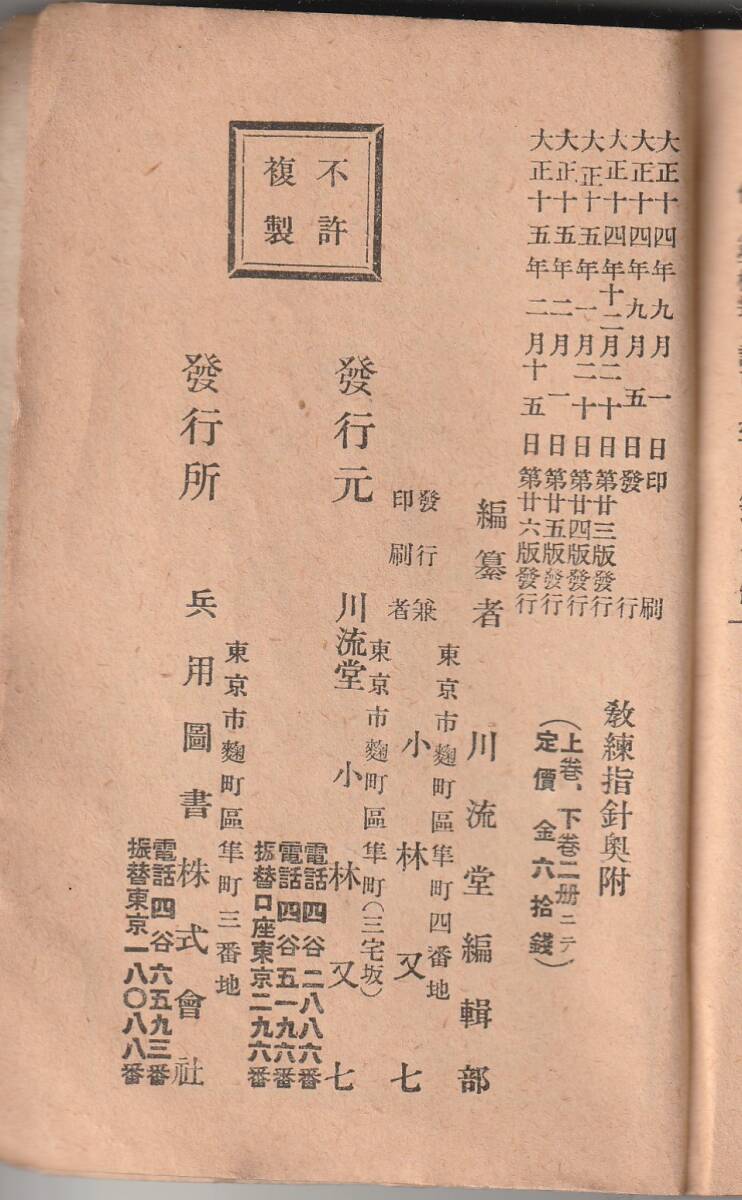 大正十四年九月一日印刷
大正十四年九月五日發行
大正十四年十二月二十日第廿三版發行
大正十五年一月二十日第廿四版發行
大正十五年二月一日第廿五版發行
大正十五年二月十五日第廿六版發行
教練指針奥附
(上卷、下卷二册ニテ
定價金六拾錢)
編纂者 川流堂編輯部
東京市麴町區隼町四番地
發行兼
印刷者 小林又七
東京市麴町區隼町(三宅坂)
發行元 川流堂 小林又七
電話四谷二八八六番
電話四谷五一九六番
振替口座東京二九六番
東京市麴町區隼町三番地
發行所 兵用圖書株式會社
電話四谷六五九三番
振替東京一八〇八八番
不許
複製